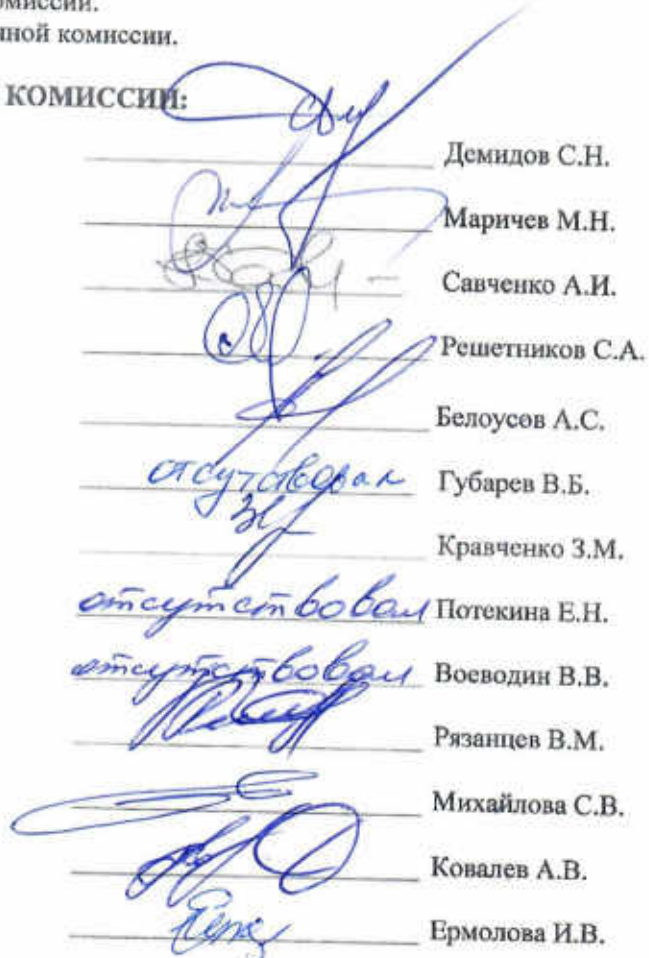 нной комиссии.
КОМИССИИ:
Демидов С.Н.
Маричев М.Н.
Савченко А.И.
Решетников С.А.
Белоусов А.С.
отсутствовал Губарев В.Б.
Кравченко З.М.
отсутствовал Потекина Е.Н.
отсутствовал Воеводин В.В.
Рязанцев В.М.
Михайлова С.В.
Ковалев А.В.
Ермолова И.В.